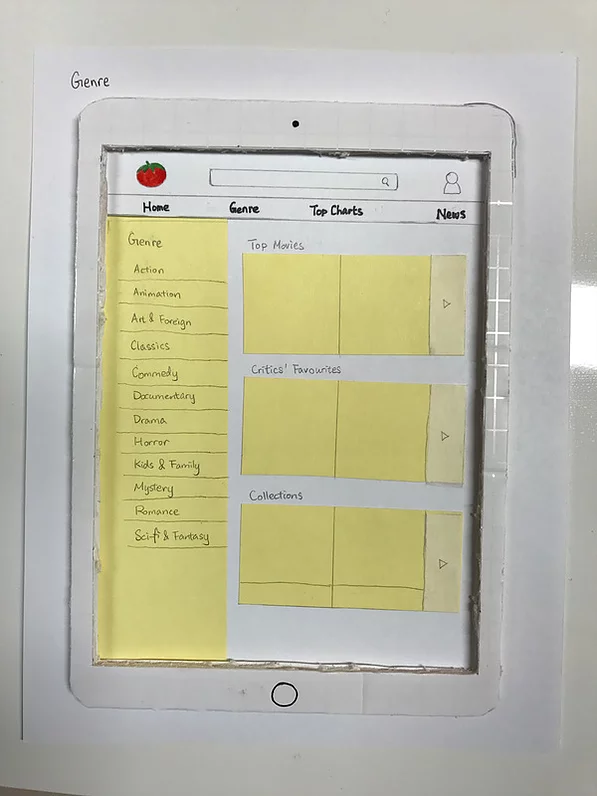 Genre
Home Genre Top Charts News
Genre
Action
Animation
Art & Foreign
Classics
Commedy
Documentary
Drama
Horror
Kids & Family
Mystery
Romance
Sci-fi & Fantasy
Top Movies
Critics' Favourites
Collections